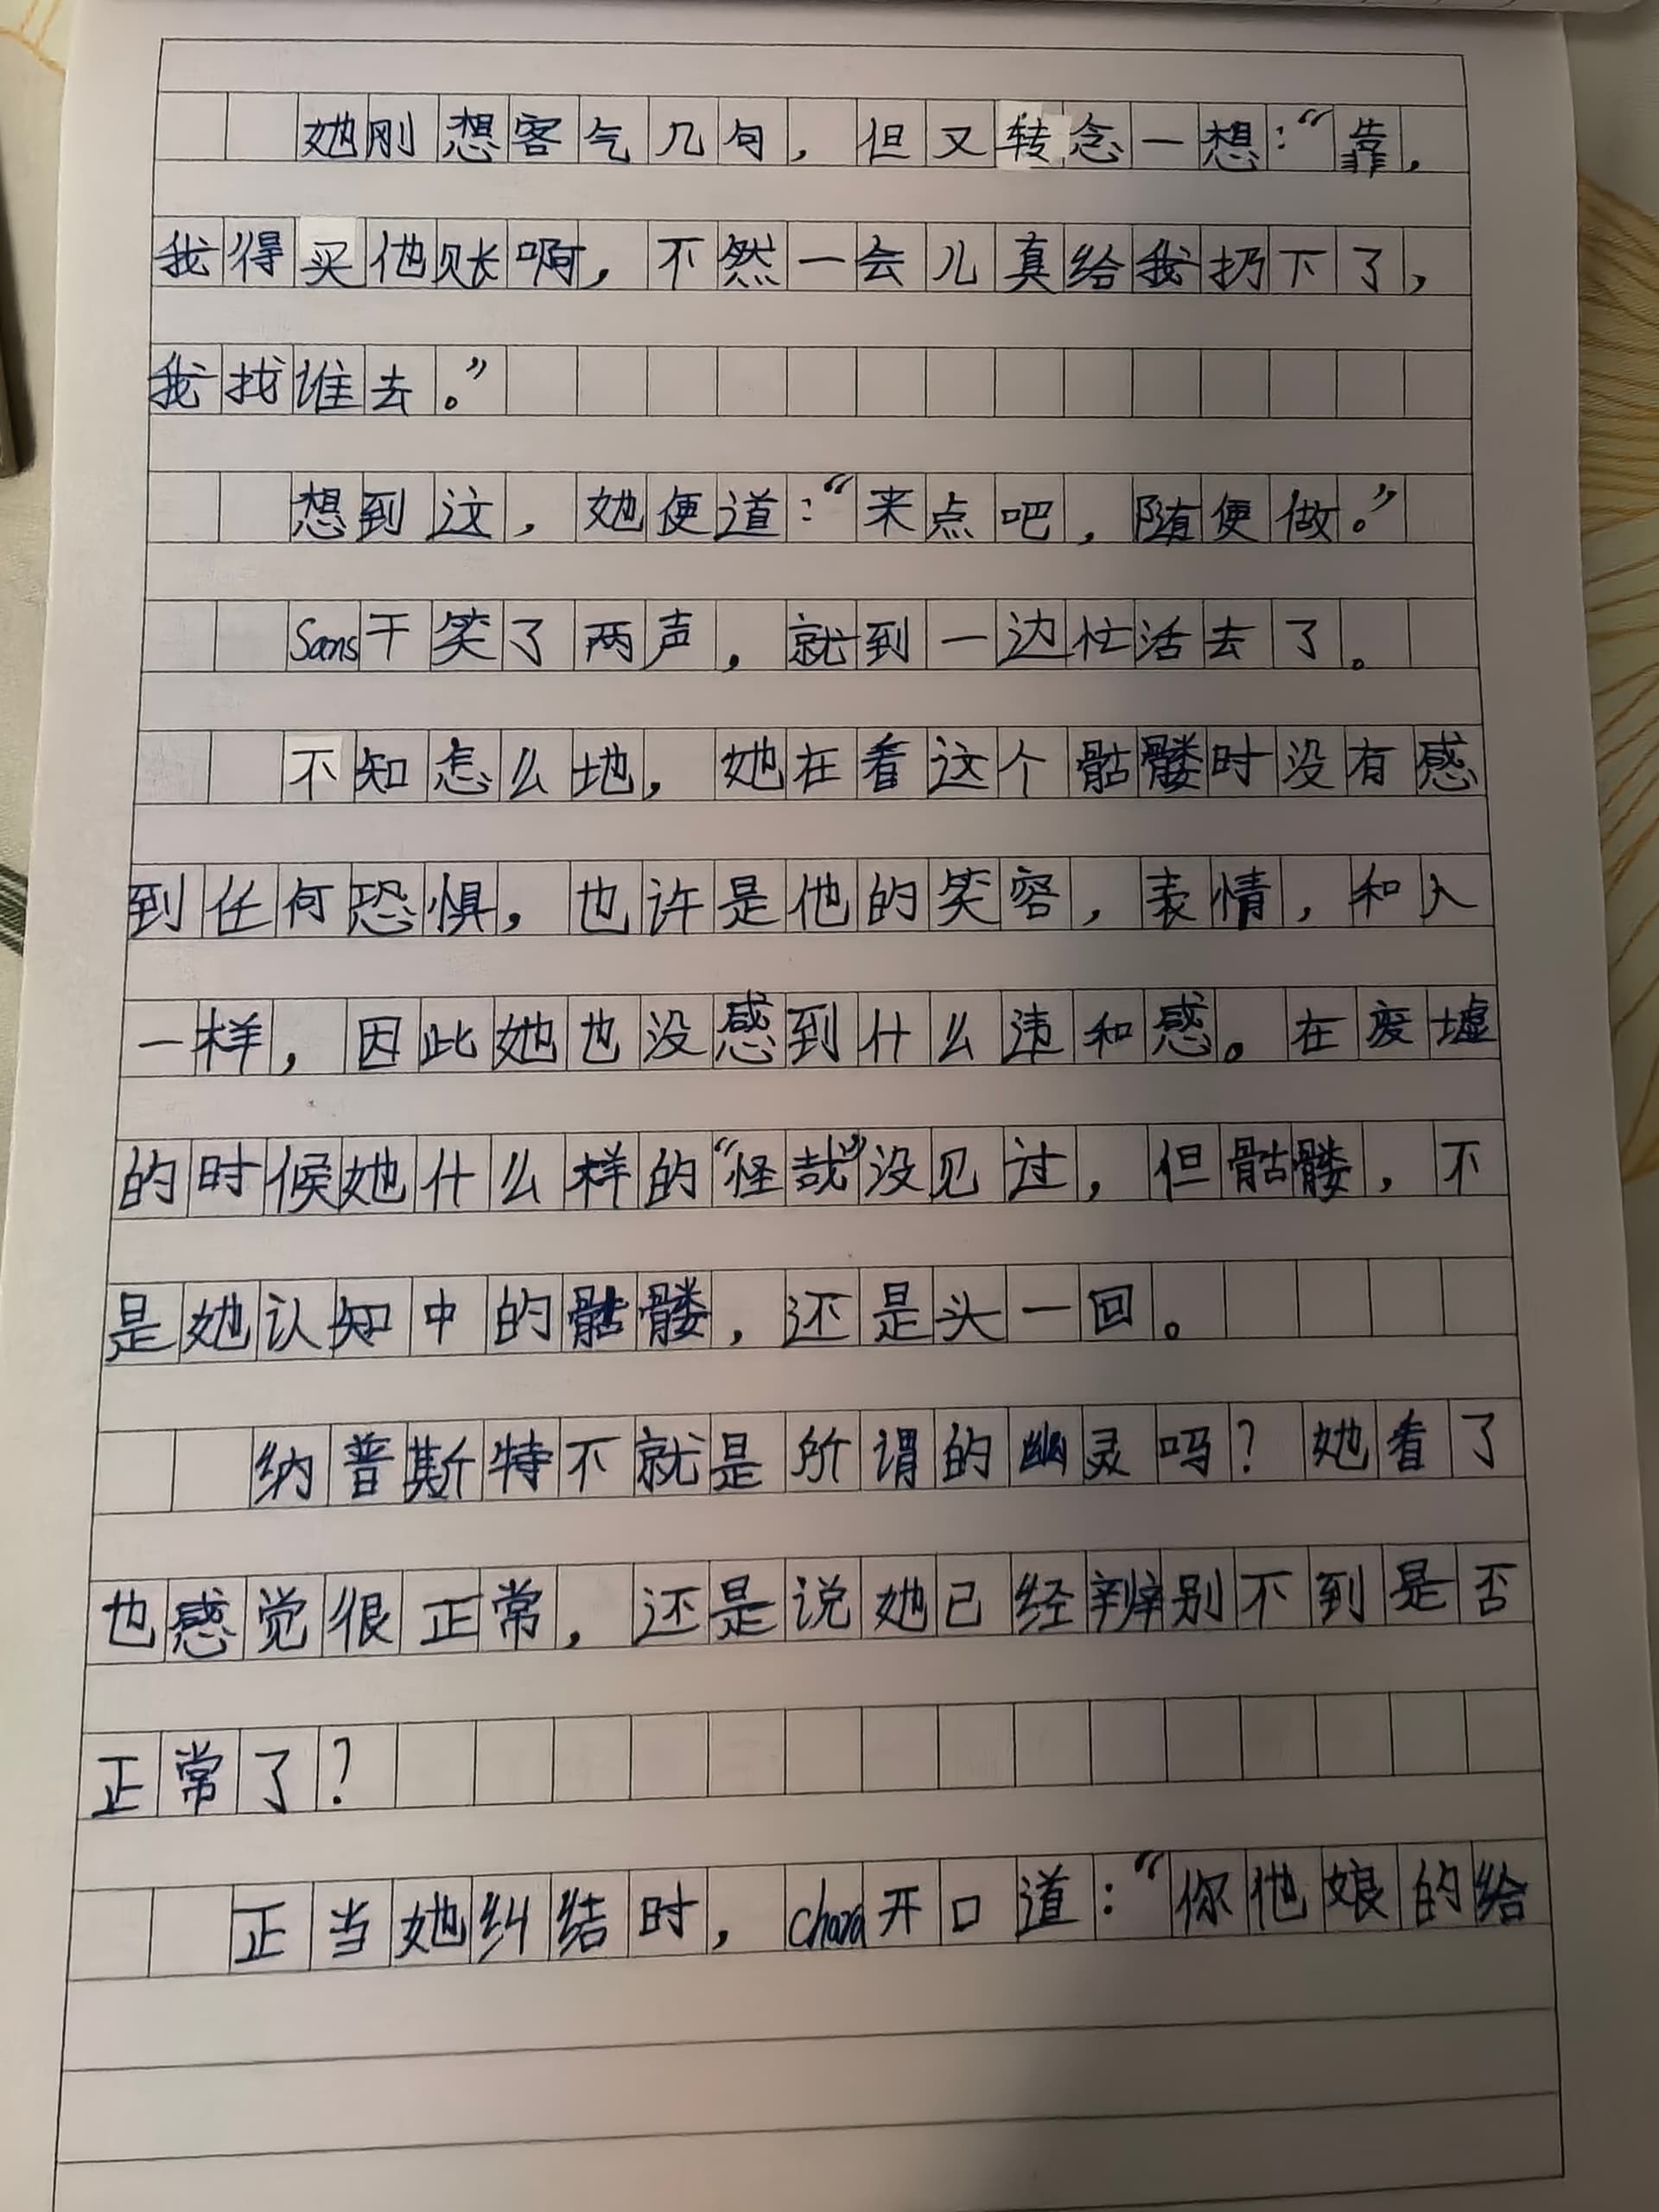 她刚想客气几句，但又转念一想：“靠，
我得买他账啊，不然一会儿真给我扔下了，
我找谁去。”
想到这，她便道：“来点吧，随便做。”
Sans干笑了两声，就到一边忙活去了。
不知怎么地，她在看这个骷髅时没有感
到任何恐惧，也许是他的笑容，表情，和人
一样，因此她也没感到什么违和感。在废墟
的时候她什么样的“怪哉”没见过，但骷髅，不
是她认知中的骷髅，还是头一回。
纳普斯特不就是所谓的幽灵吗？她看了
也感觉很正常，还是说她已经辨别不到是否
正常了？
正当她纠结时，chara开口道：“你他娘的给